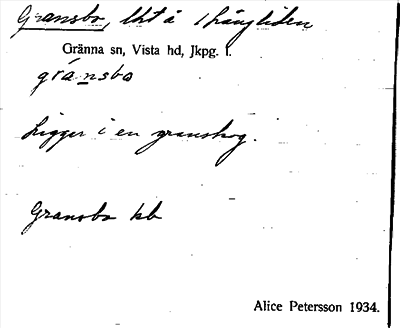 Gransbo, lht å 1 Långliden
Gränna sn, Vista hd, Jkpg. l.
gránsbo
Ligger i en granskog.
Gransbo kb
Alice Petersson 1934.